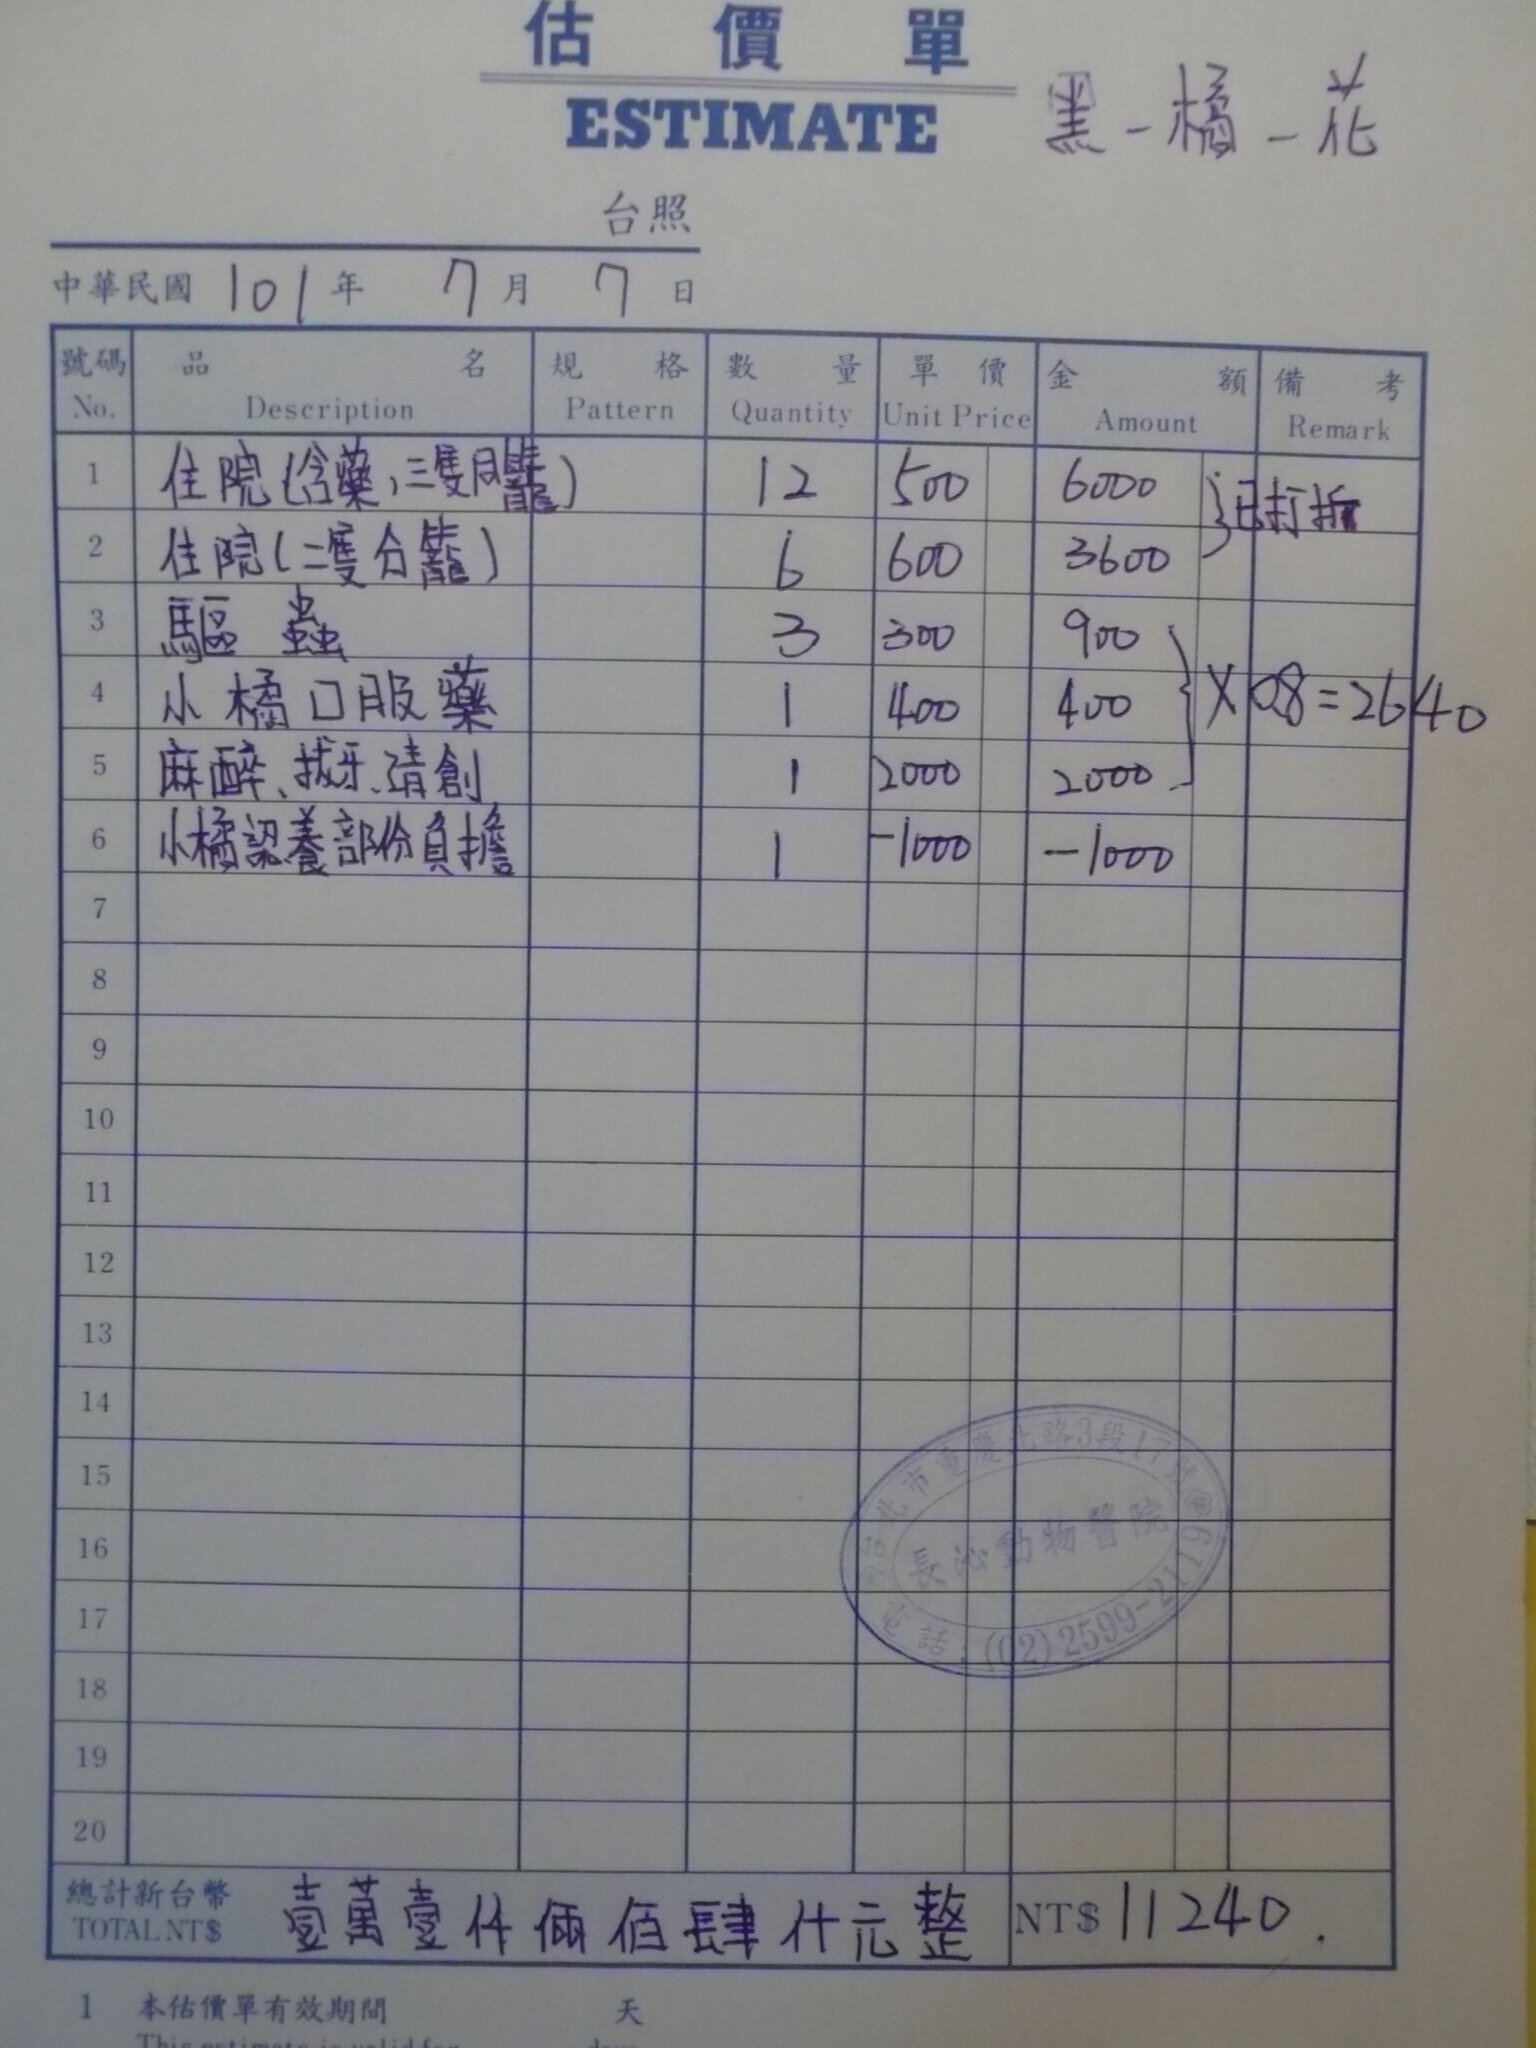 估價單
ESTIMATE
黑-橘-花
台照
中華民國 101 年 7 月 7 日
號碼 品名 規格 數量 單價 金額 備考
No. Description Pattern Quantity Unit Price Amount Remark
1 住院(含藥,三隻同籠) 12 500 6000 已打折
2 住院(二隻分籠) 6 600 3600
3 驅蟲 3 300 900
4 小橘口服藥 1 400 400 X 0.8 = 2640
5 麻醉、拔牙、清創 1 2000 2000
6 小橘認養部份負擔 1 -1000 -1000
7
8
9
10
11
12
13
14
15
16
17
18
19
20
台北市重慶北路3段17號
長沁動物醫院
電話:(02)2599-2119
總計新台幣 壹萬壹仟倆佰肆什元整 NT$ 11240.
TOTAL NT$
1 本估價單有效期間 天
This estimate is valid for days